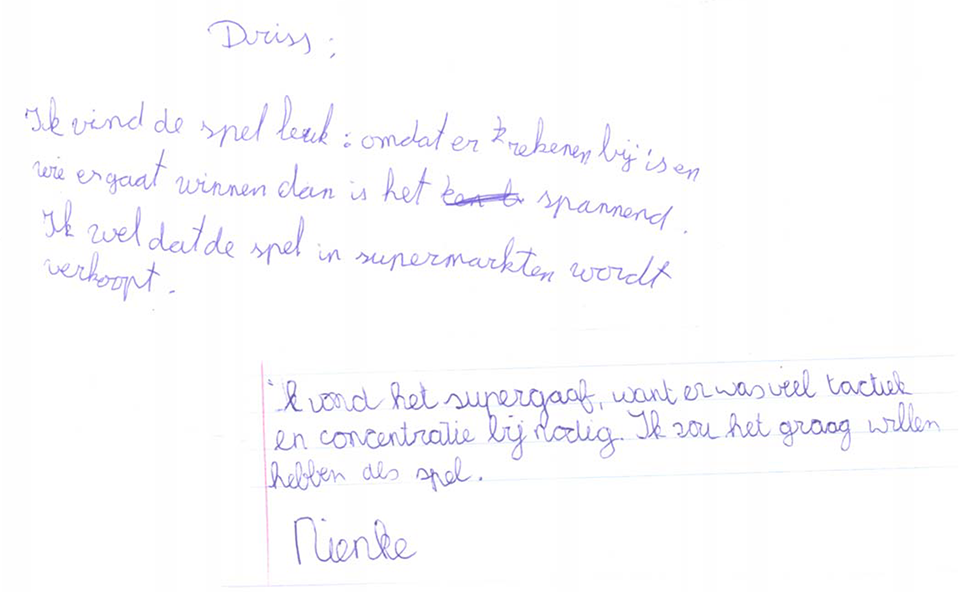 Driss :
Ik vind de spel leuk : omdat er rekenen bij is en
wie er gaat winnen dan is het spannend.
Ik wel dat de spel in supermarkten wordt
verkoopt.
Ik vond het supergaaf, want er was veel tactiek
en concentratie bij nodig. Ik zou het graag willen
hebben als spel.
Nienke